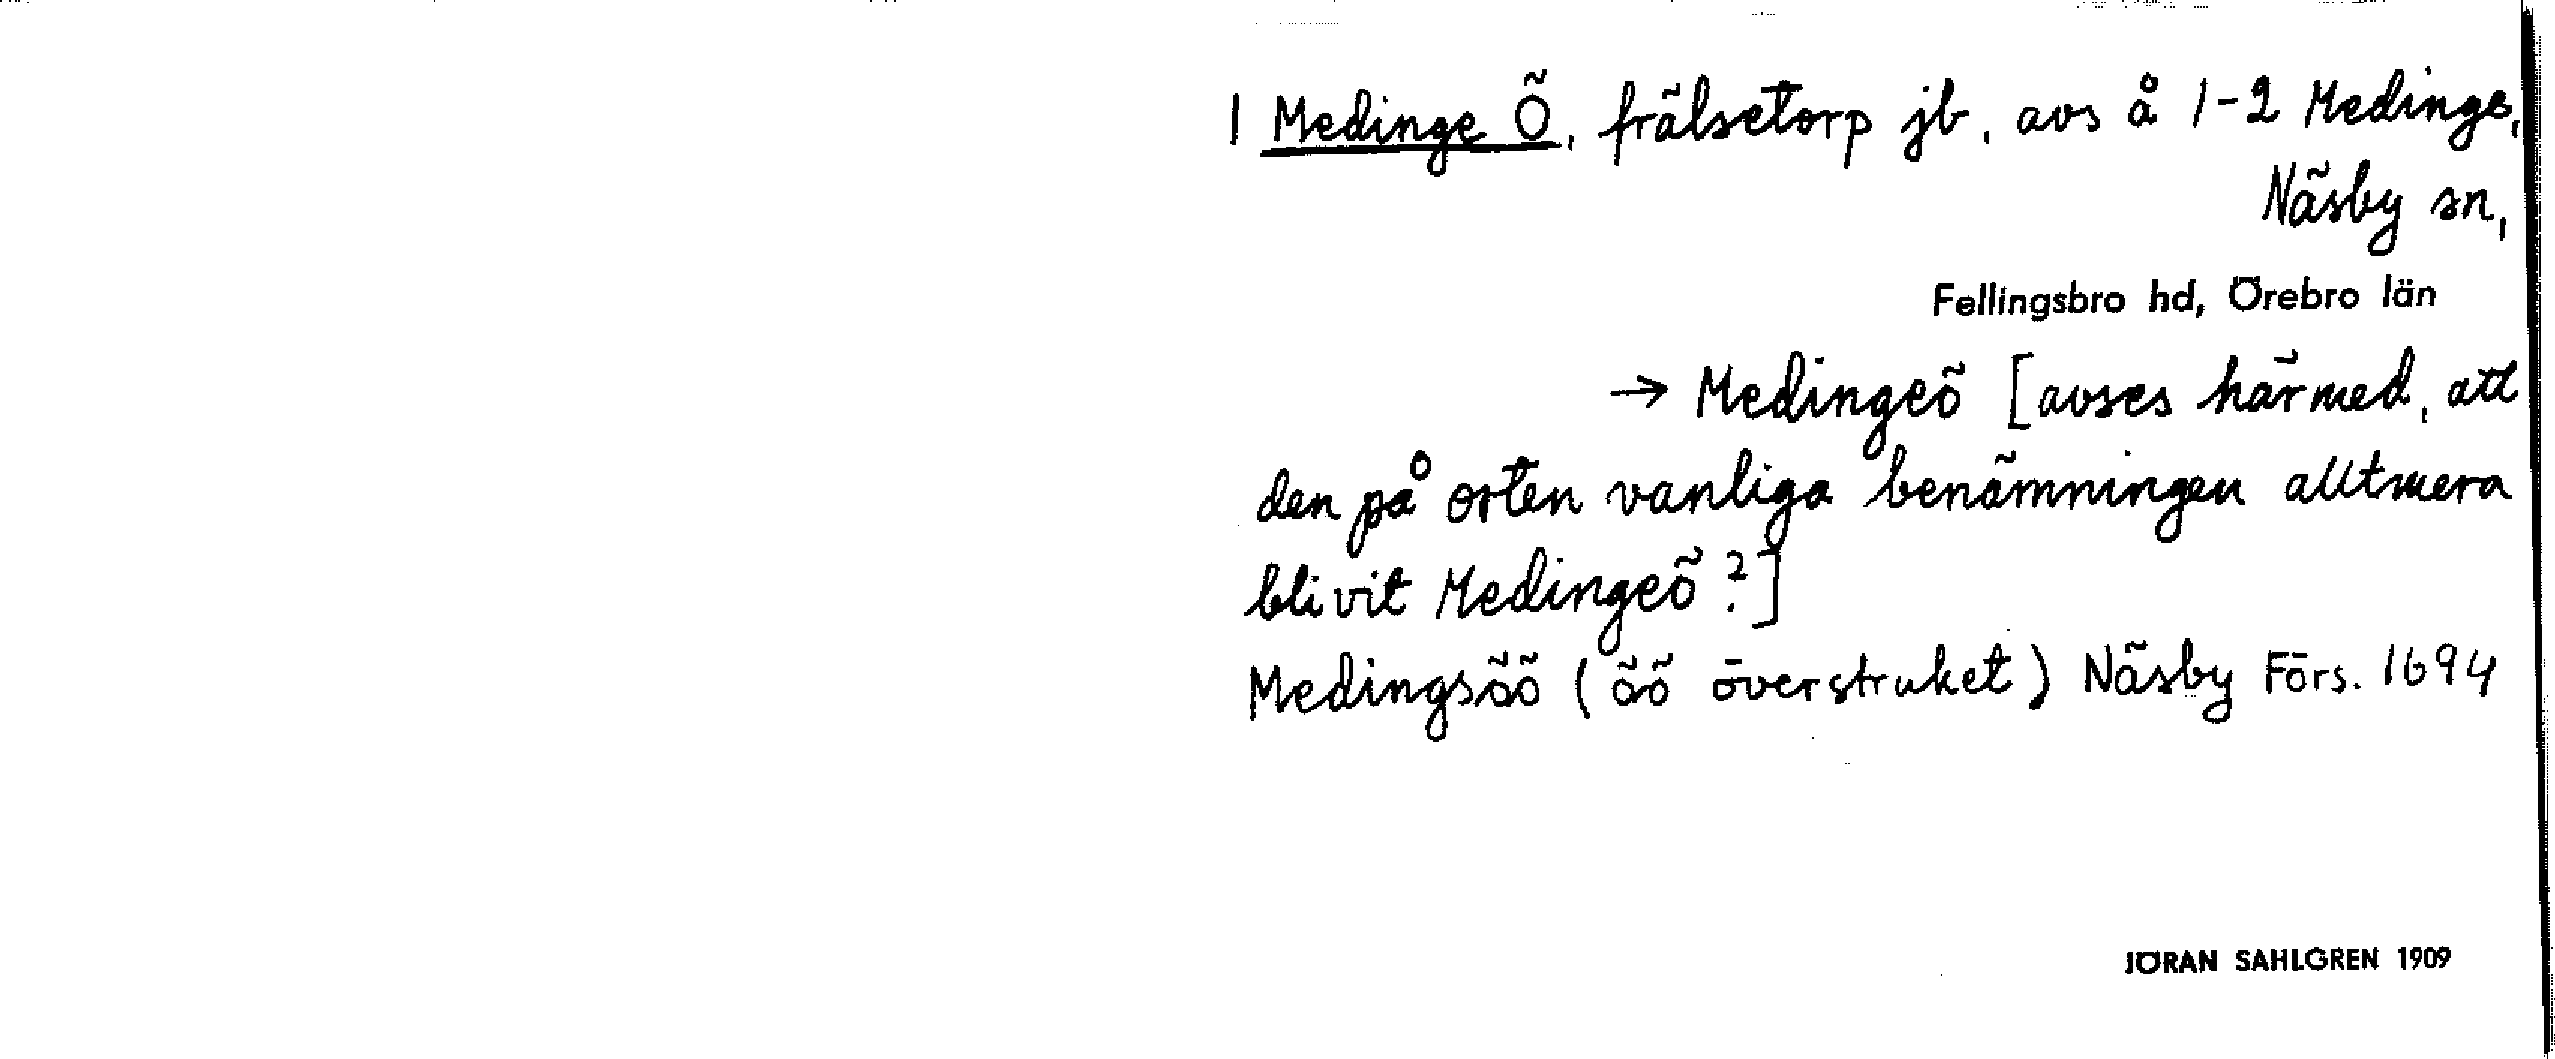 1 Medinge Ö, frälsetorp jb, avs å 1-2 Medinge,
Näsby sn,
Fellingsbro hd, Örebro län
→ Medingeö [avses härmed, att
den på orten vanliga benämningen alltmera
blivit Medingeö?]
Medingsöö (öö överstruket) Näsby Förs. 1694
JÖRAN SAHLGREN 1909